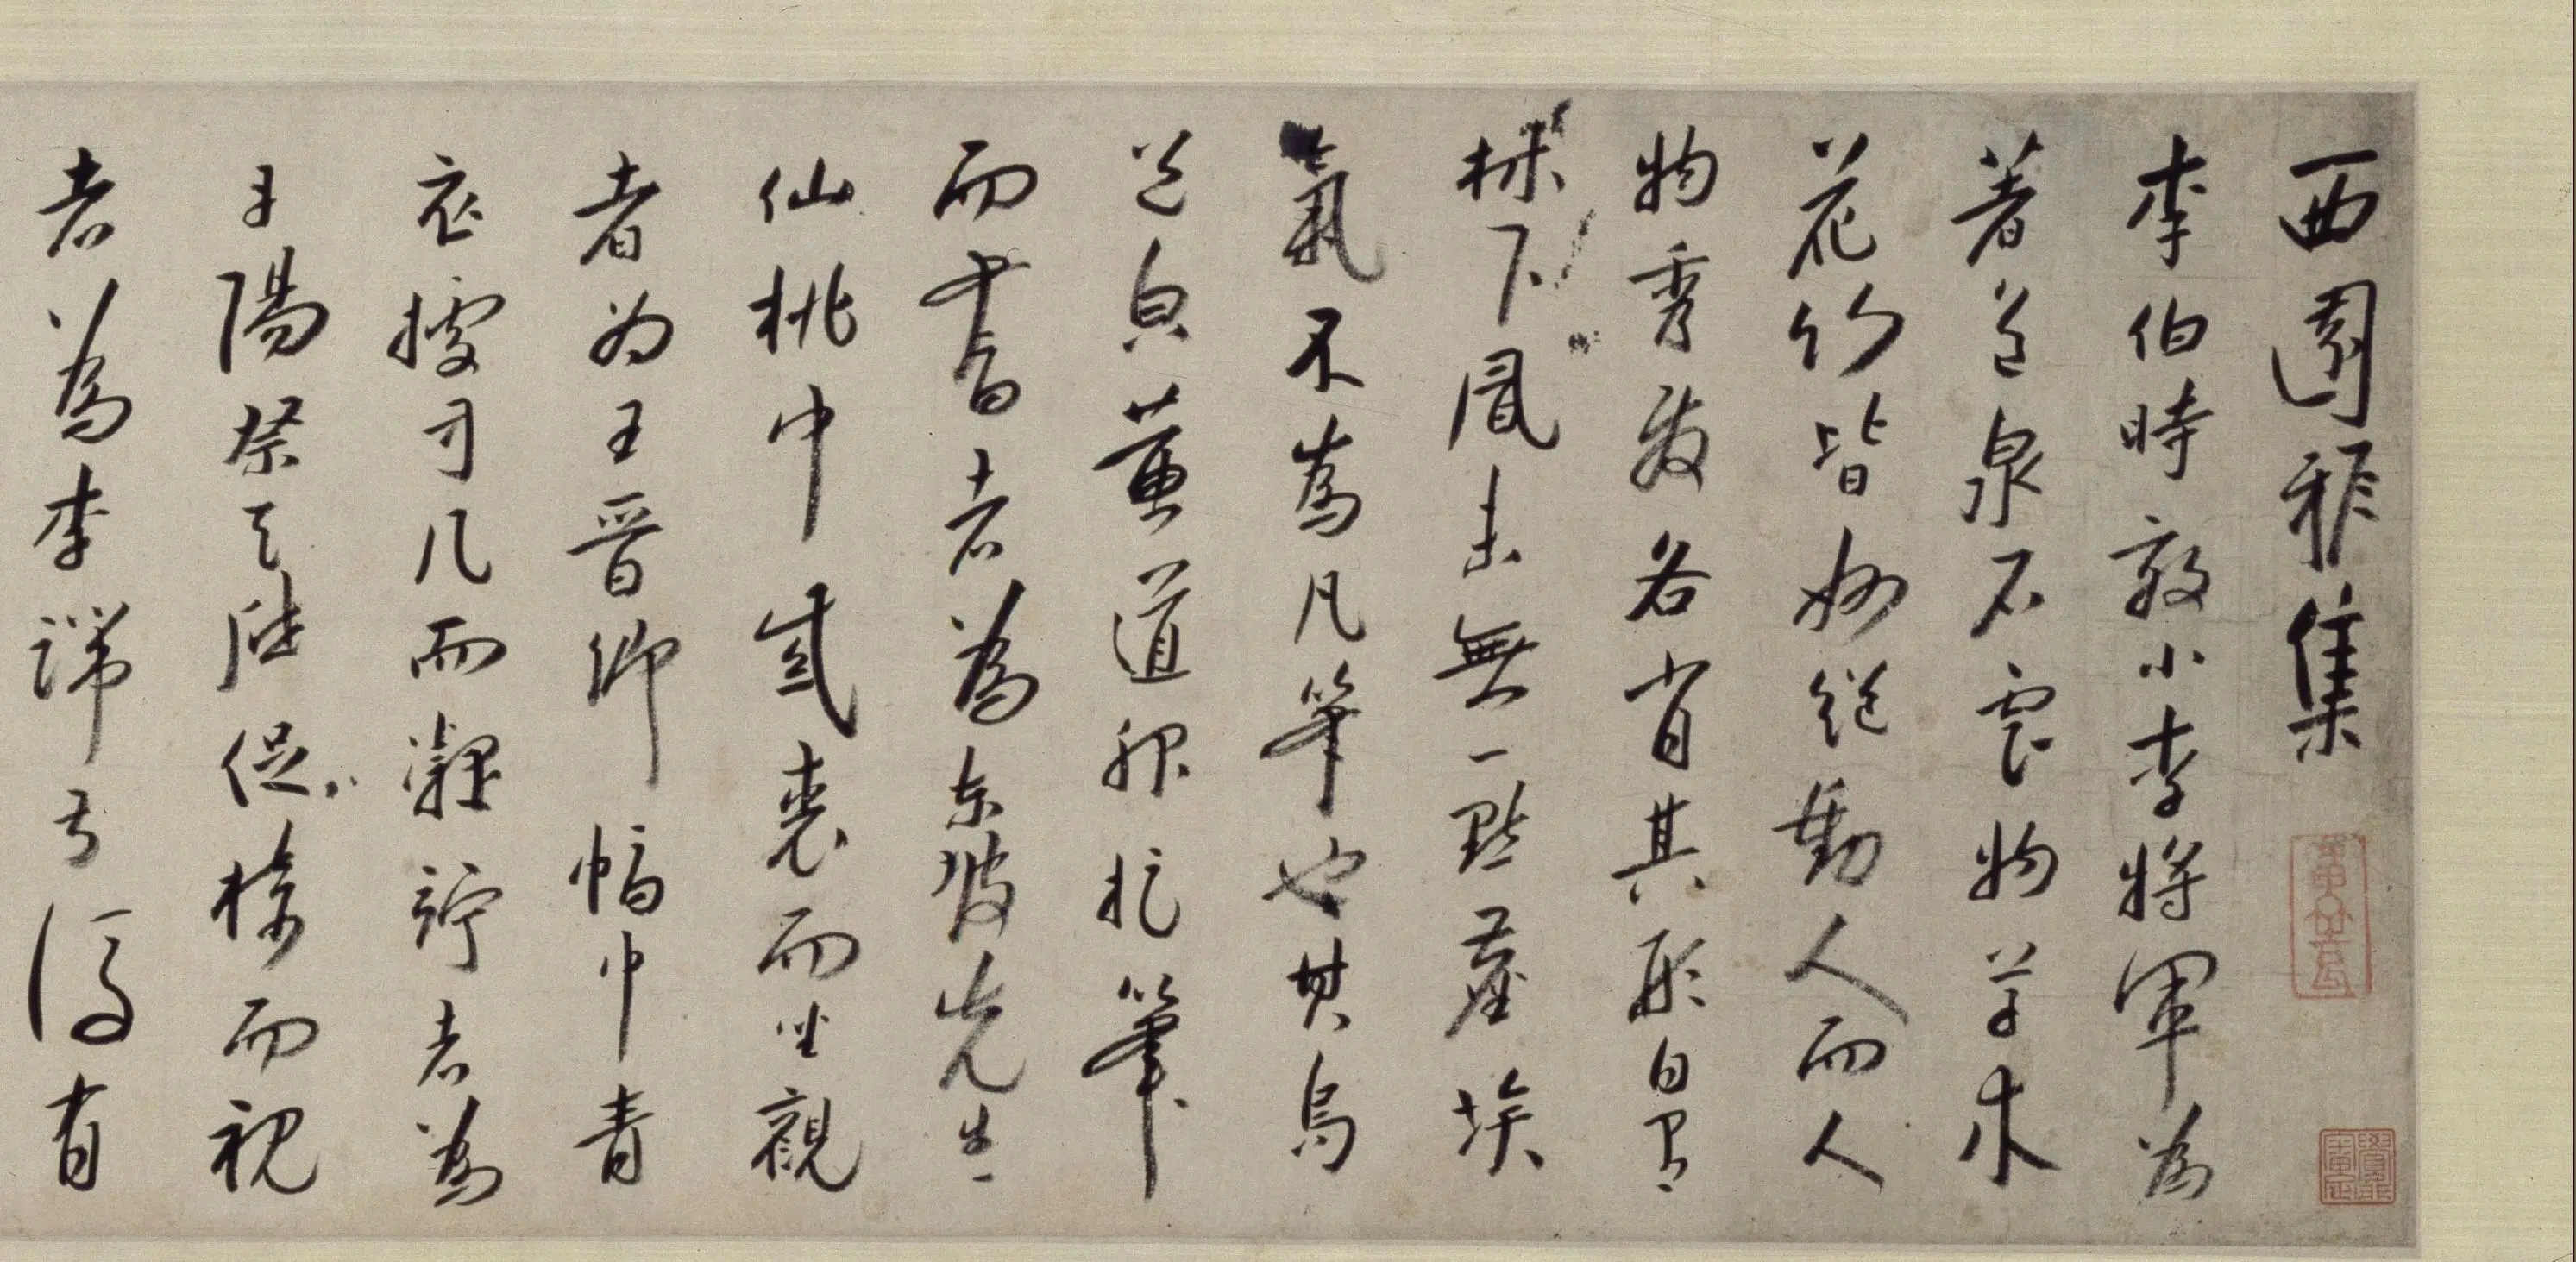 西園雅集
李伯時效小李將軍為
著色泉石雲物草木
花竹皆妙絕動人而人
物秀發各肖其形自有
林下風味無一點塵埃
氣不為凡筆也其烏
黃道服捉筆
而書者為東坡先生
仙桃巾紫裘而坐觀
者為王晉卿幅巾青
衣據方几而凝竚者為
丹陽蔡天啟捉椅而視
者為李端叔後有